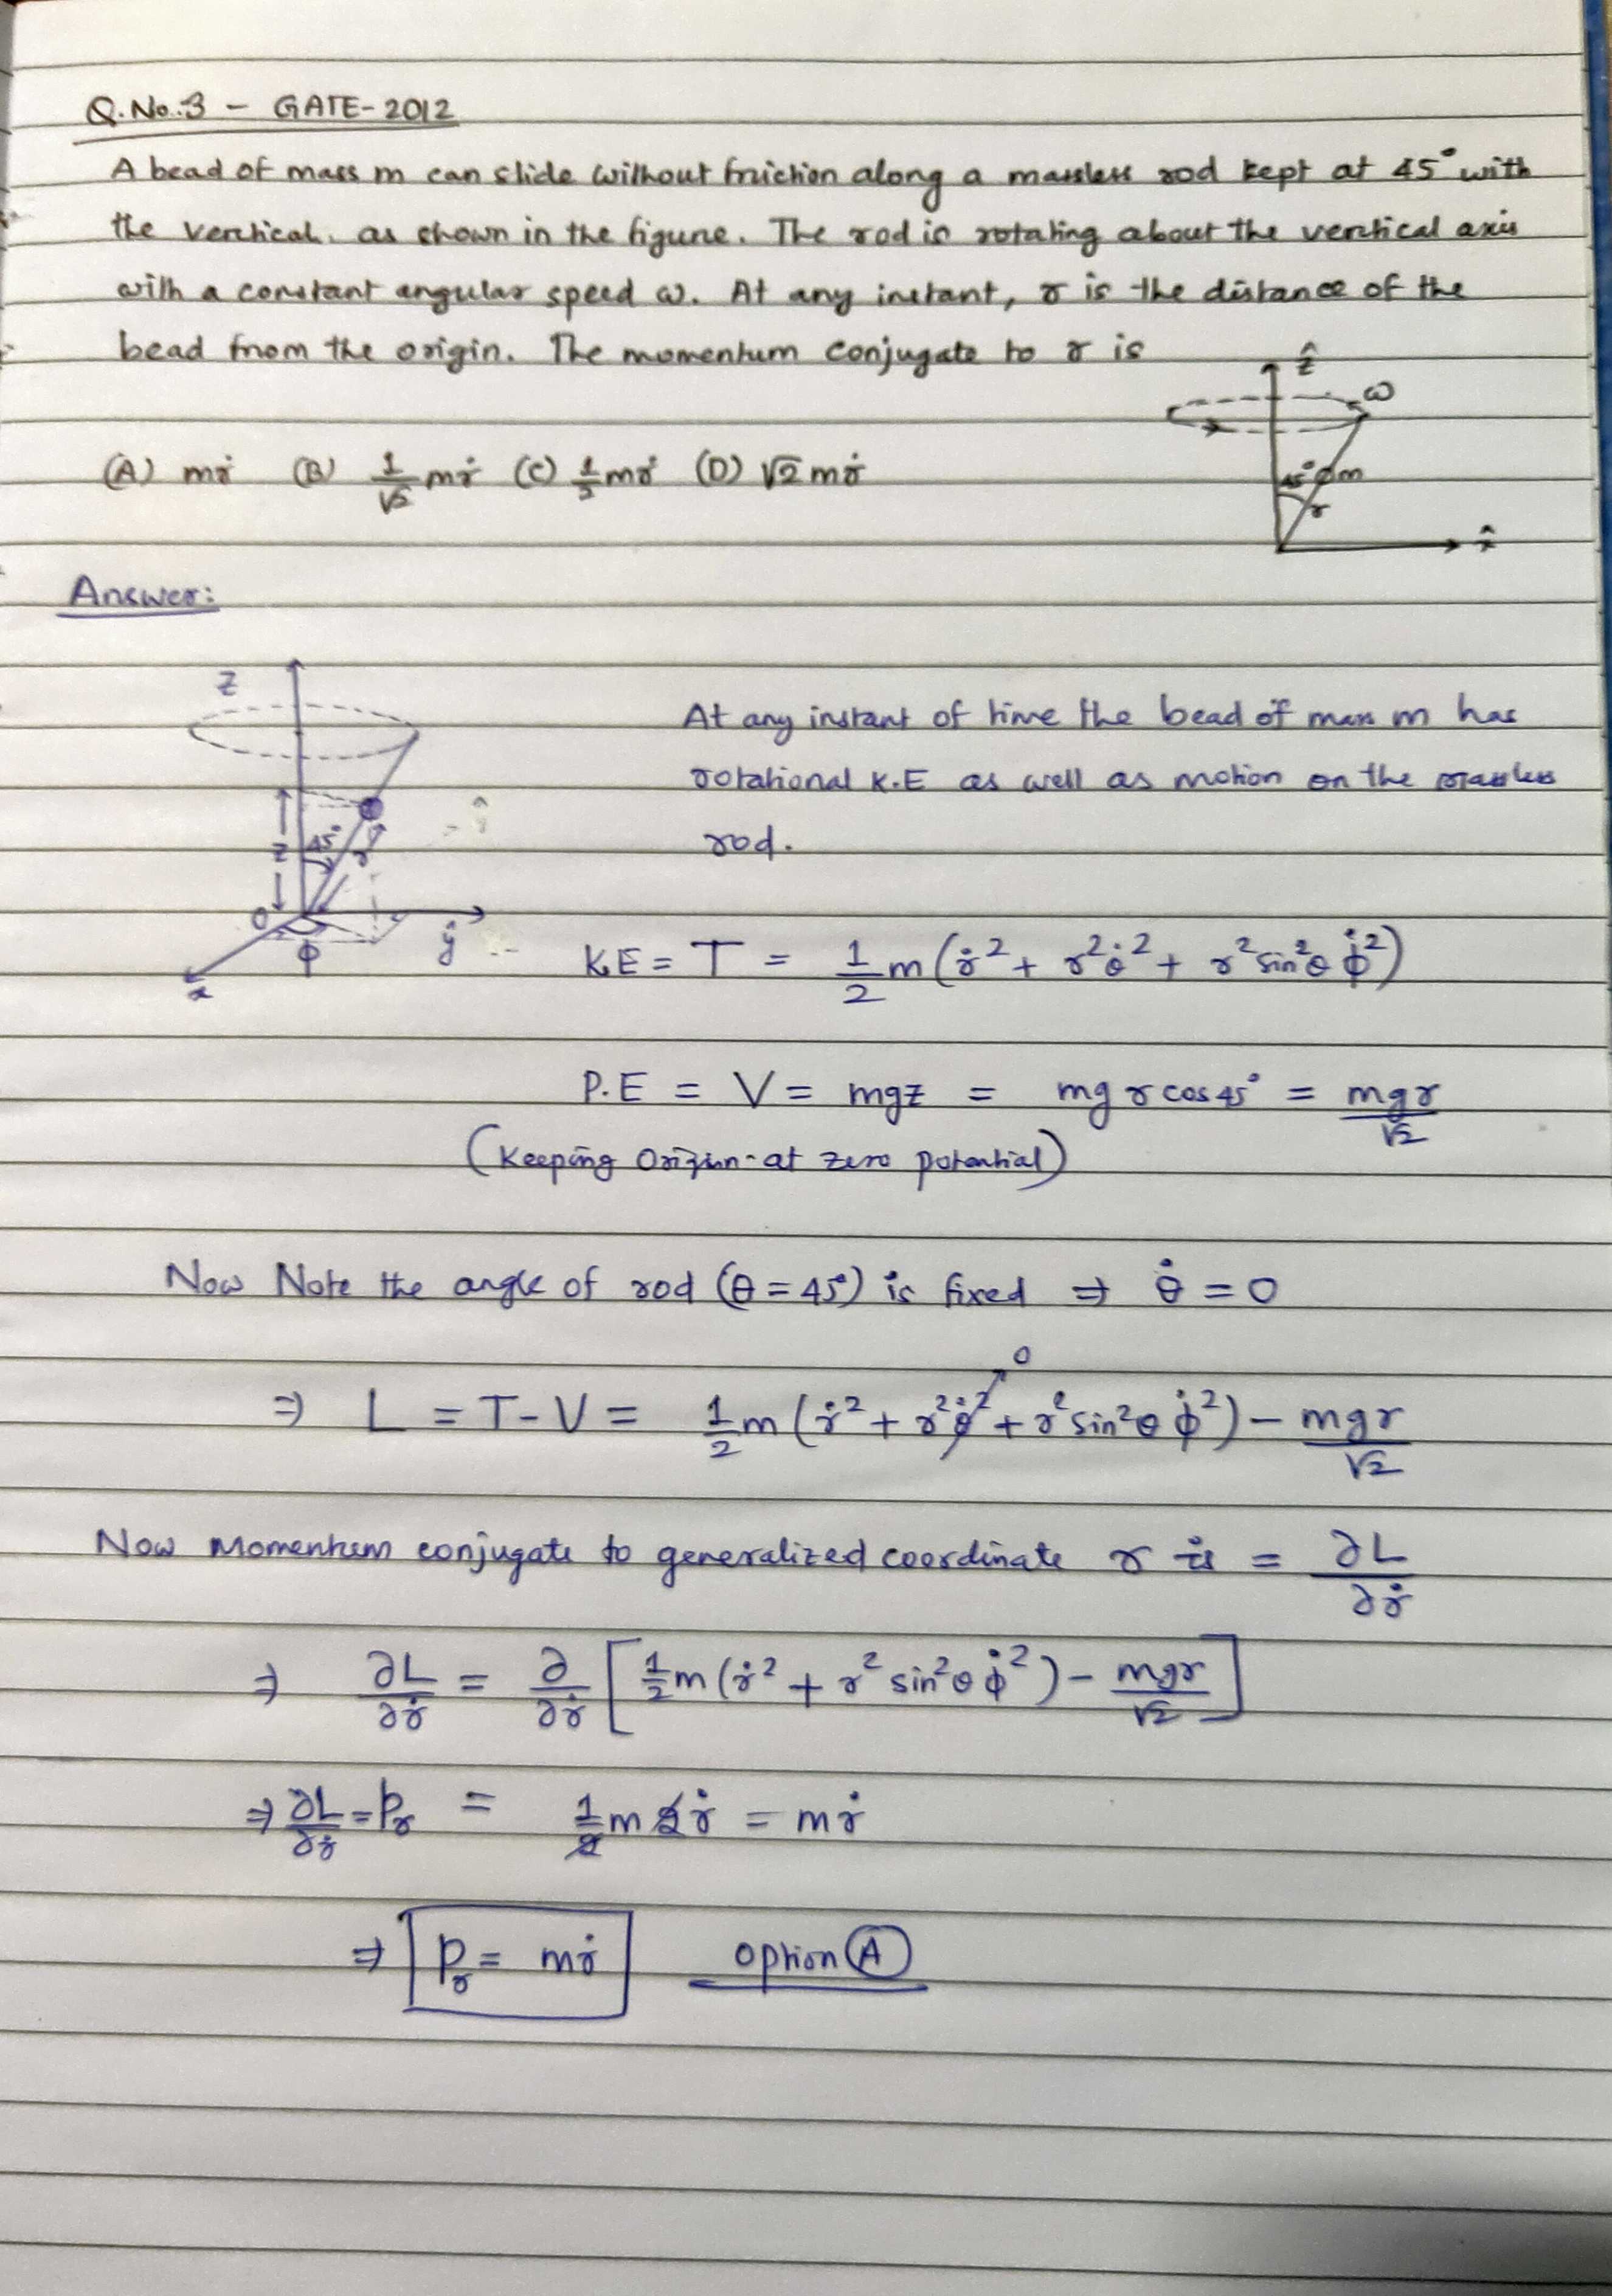 Q.No.:3 - GATE-2012
A bead of mass m can slide without friction along a massless rod kept at 45° with
the vertical. as shown in the figure. The rod is rotating about the vertical axis
with a constant angular speed ω. At any instant, r is the distance of the
bead from the origin. The momentum conjugate to r is
ẑ
ω
45° m
r
x̂
(A) mṙ (B) 1/√2 mṙ (C) 1/2 mṙ (D) √2 mṙ
Answer:
Z
45°
z
r
O
ϕ
ŷ
x
At any instant of time the bead of mass m has
rotational K.E as well as motion on the massless
rod.
KE = T = 1/2 m(ṙ² + r²θ̇² + r²sin²θ ϕ̇²)
P.E = V = mgz = mg r cos45° = mgr/√2
(Keeping Origin at zero potential)
Now Note the angle of rod (θ = 45°) is fixed ⇒ θ̇ = 0
0
⇒ L = T - V = 1/2 m (ṙ² + r²θ̇² + r²sin²θ ϕ̇²) - mgr/√2
Now Momentum conjugate to generalized coordinate r is = ∂L/∂ṙ
⇒ ∂L/∂ṙ = ∂/∂ṙ [1/2 m (ṙ² + r² sin²θ ϕ̇²) - mgr/√2]
⇒ ∂L/∂ṙ = Pr = 1/2 m 2ṙ = mṙ
⇒ Pr = mṙ option (A)